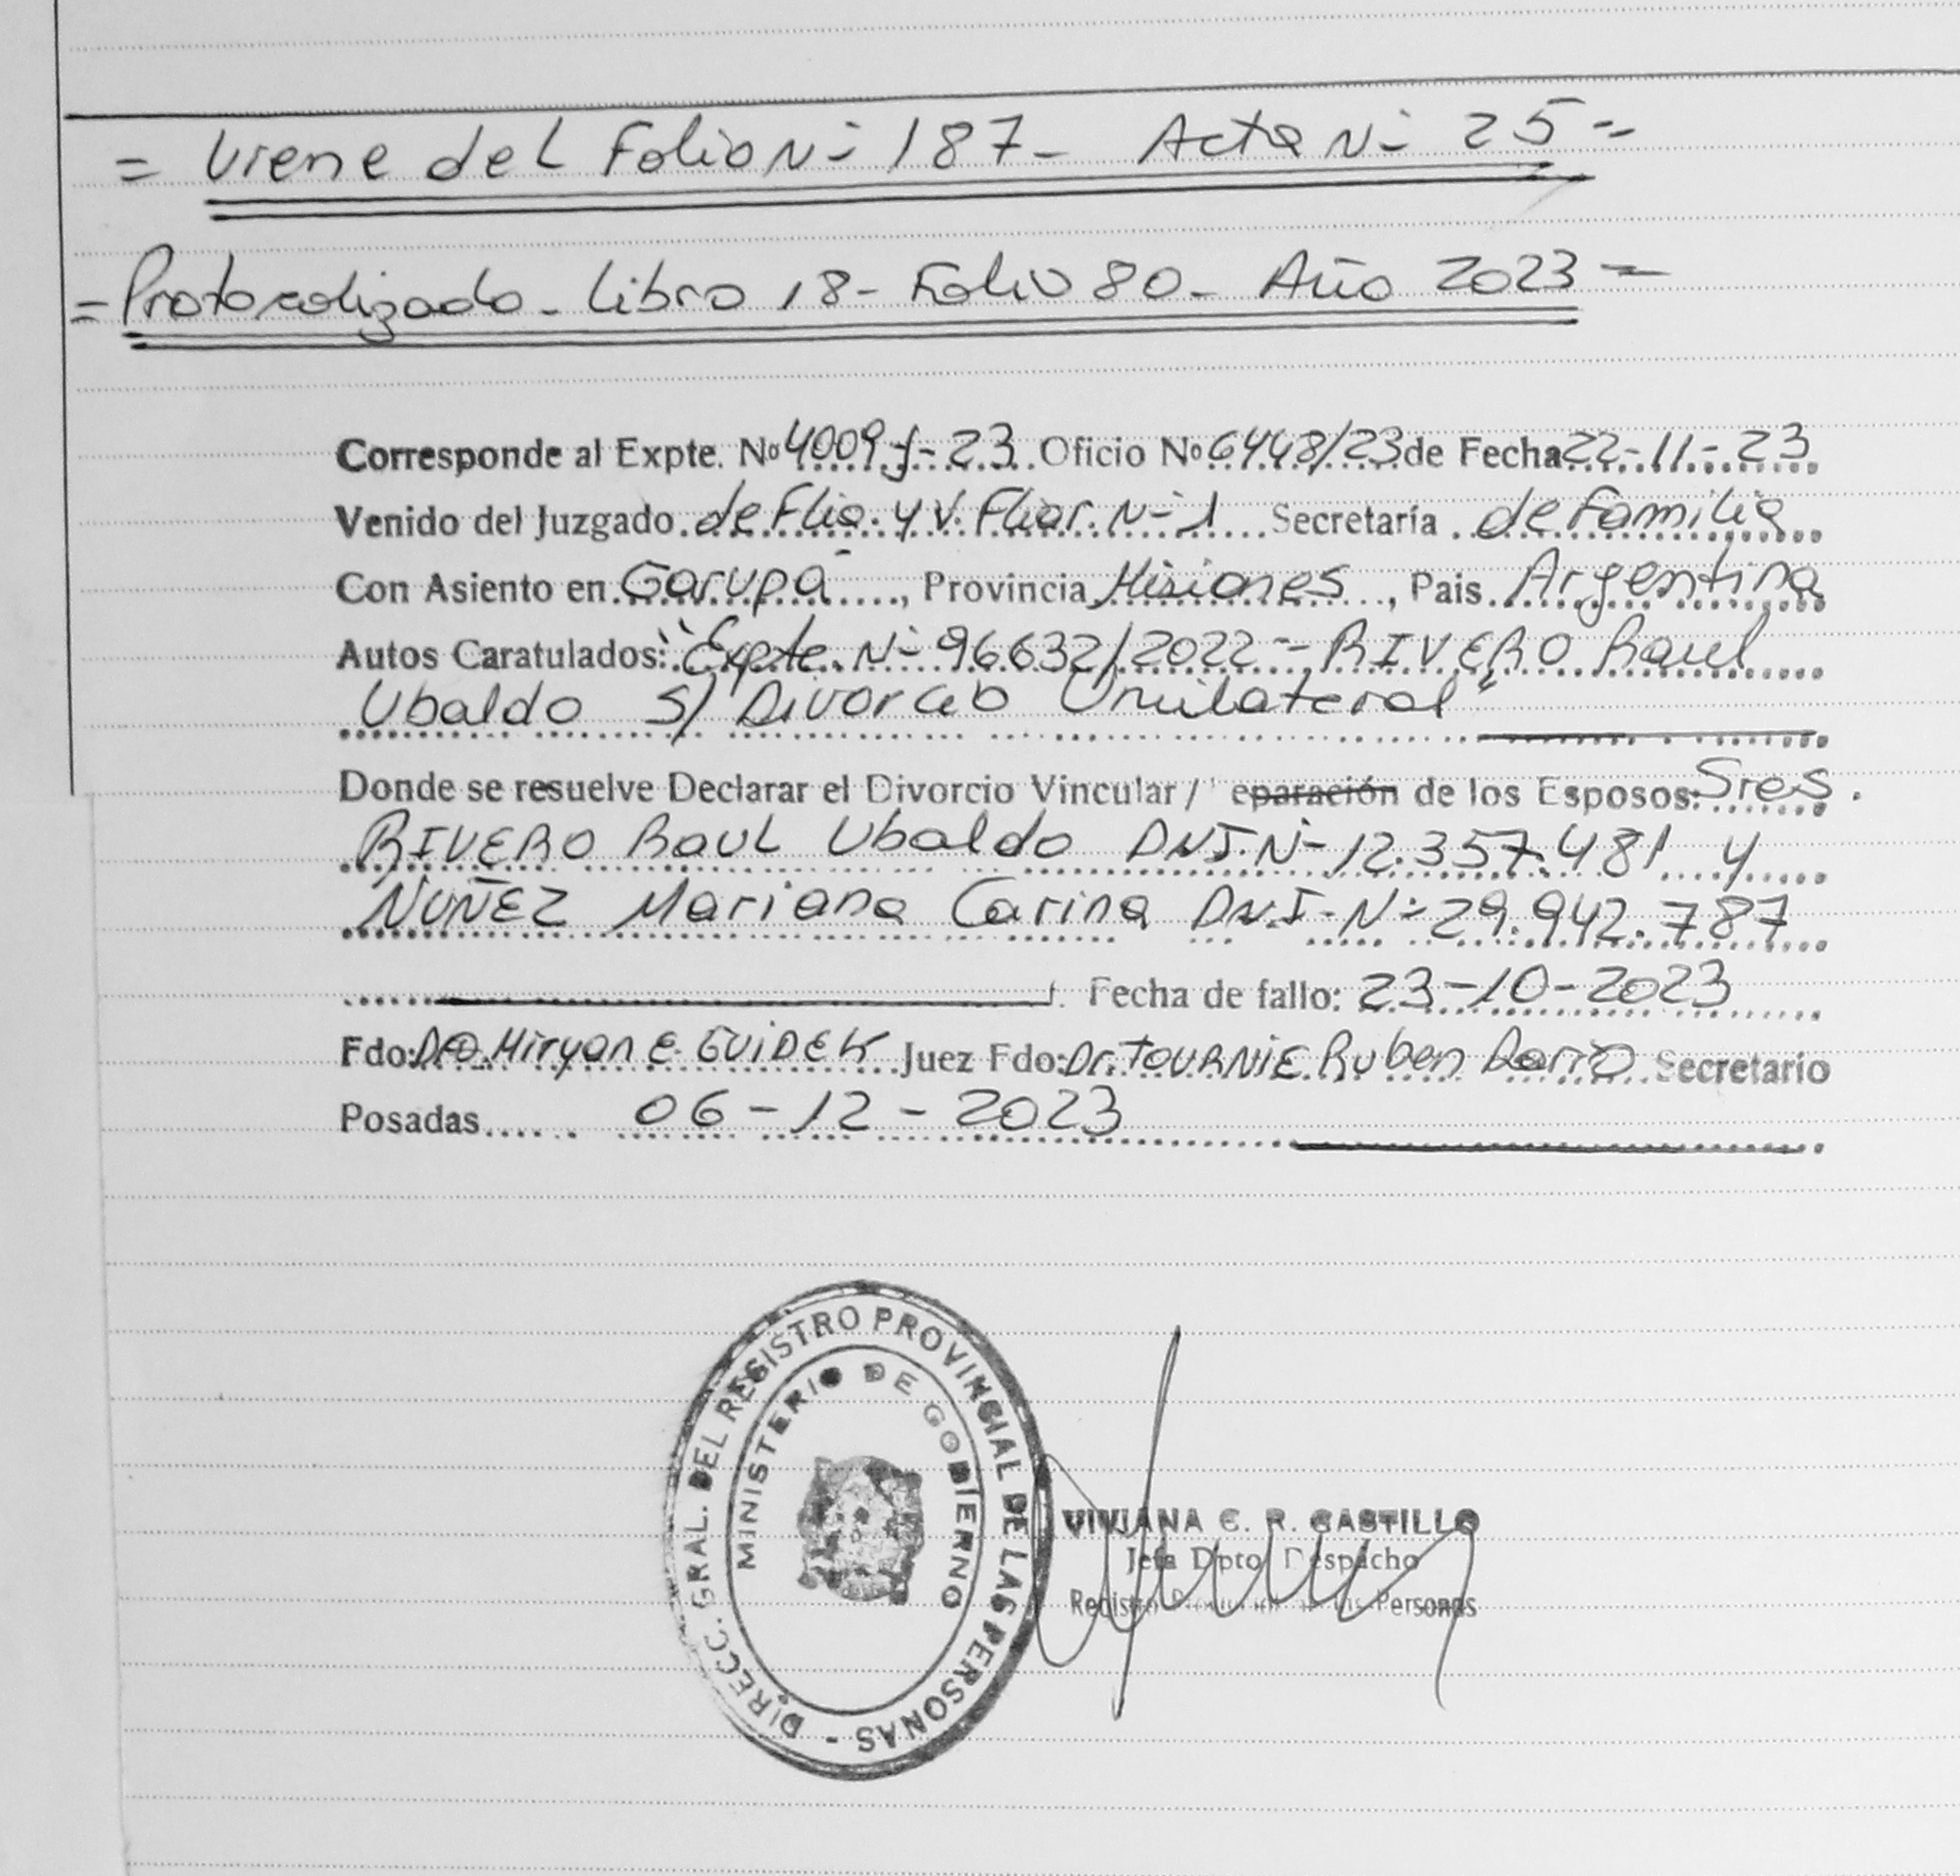 = Viene del Folio N- 187- Acta N- 25 =
= Protocolizado - Libro 18 - Folio 80 - Año 2023 =
Corresponde al Expte. Nº 4009-J-23 Oficio Nº 6448/23 de Fecha 22-11-23
Venido del Juzgado de Flia. y V. Fliar. N- 1 Secretaría de Familia
Con Asiento en Garupá, Provincia Misiones, Pais Argentina
Autos Caratulados: "Expte. N- 96632/2022 - RIVERO Raul
Ubaldo S/ Divorcio Unilateral"
Donde se resuelve Declarar el Divorcio Vincular / eparación de los Esposos: Sres.
RIVERO RAUL Ubaldo DNI. N- 12.357.481 y
NUÑEZ Mariana Carina DNI- N- 29.942.787
Fecha de fallo: 23-10-2023
Fdo: Dra. Miryan E. GUIDEK Juez Fdo: Dr. TOURNIE Ruben Dario Secretario
Posadas 06-12-2023
DIRECC. GRAL. DEL REGISTRO PROVINCIAL DE LAS PERSONAS -
MINISTERIO DE GOBIERNO
VIVIANA C. R. CASTILLO
Jefa Dpto Despacho
Registro Personas